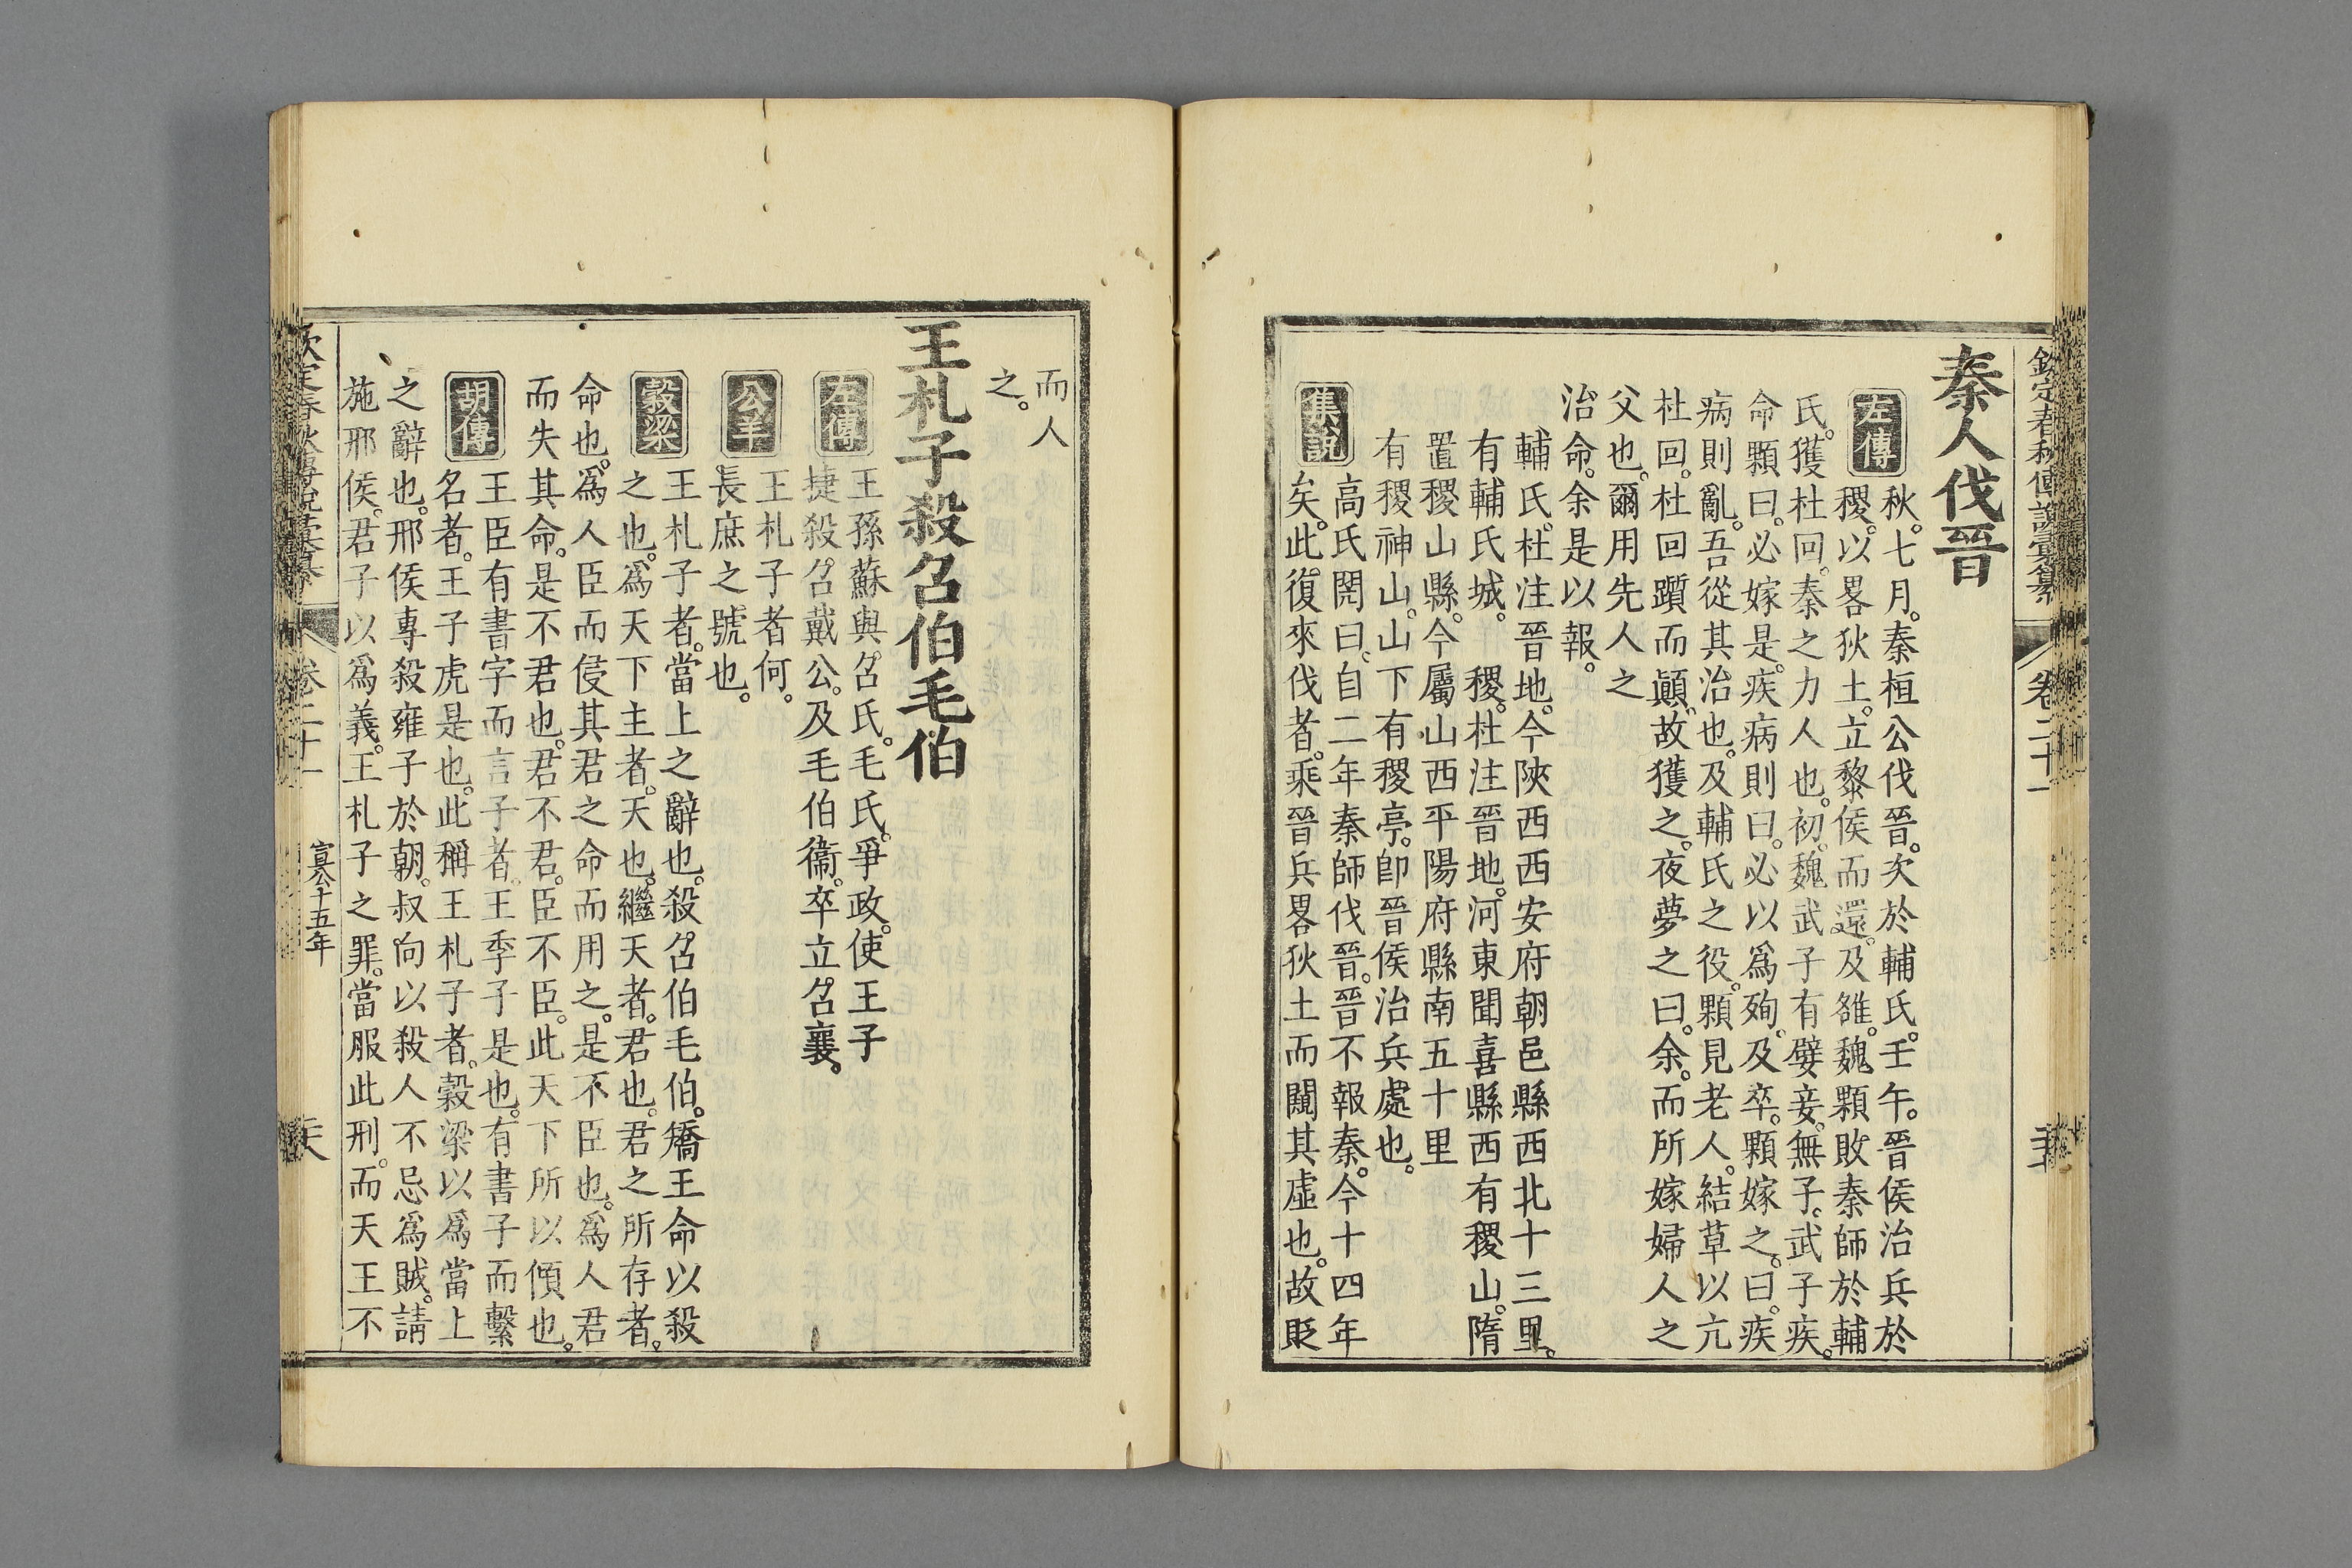 欽定春秋傳說彙纂 卷二十一
秦人伐晉
左傳
秋。七月。秦桓公伐晉。次於輔氏。壬午。晉侯治兵於
稷。以畧狄土。立黎侯而還。及雒。魏顆敗秦師於輔
氏。獲杜回。秦之力人也。初。魏武子有嬖妾。無子。武子疾。
命顆曰。必嫁是。疾病則曰。必以爲殉。及卒。顆嫁之。曰。疾
病則亂。吾從其治也。及輔氏之役。顆見老人。結草以亢
杜回。杜回躓而顚。故獲之。夜夢之曰。余。而所嫁婦人之
父也。爾用先人之
治命。余是以報。
輔氏。杜注晉地。今陝西西安府朝邑縣西北十三里。
有輔氏城。 稷。杜注晉地。河東聞喜縣西有稷山。隋
置稷山縣。今屬山西平陽府縣南五十里
有稷神山。山下有稷亭。卽晉侯治兵處也。
集說
高氏閌曰。自二年秦師伐晉。晉不報秦。今十四年
矣。此復來伐者。乘晉兵畧狄土而闚其虛也。故貶
而人
之。
王札子殺召伯毛伯
左傳
王孫蘇與召氏。毛氏。爭政。使王子
捷殺召戴公。及毛伯衞。卒立召襄。
公羊
王札子者何。
長庶之號也。
穀梁
王札子者。當上之辭也。殺召伯毛伯。矯王命以殺
之也。爲天下主者。天也。繼天者。君也。君之所存者。
命也。爲人臣而侵其君之命而用之。是不臣也。爲人君
而失其命。是不君也。君不君。臣不臣。此天下所以傾也。
胡傳
王臣有書字而言子者。王季子是也。有書子而繫
名者。王子虎是也。此稱王札子者。穀梁以爲當上
之辭也。邢侯專殺雍子於朝。叔向以殺人不忌爲賊。請
施邢侯。君子以爲義。王札子之罪。當服此刑。而天王不
欽定春秋傳說彙纂 卷二十一 宣公十五年